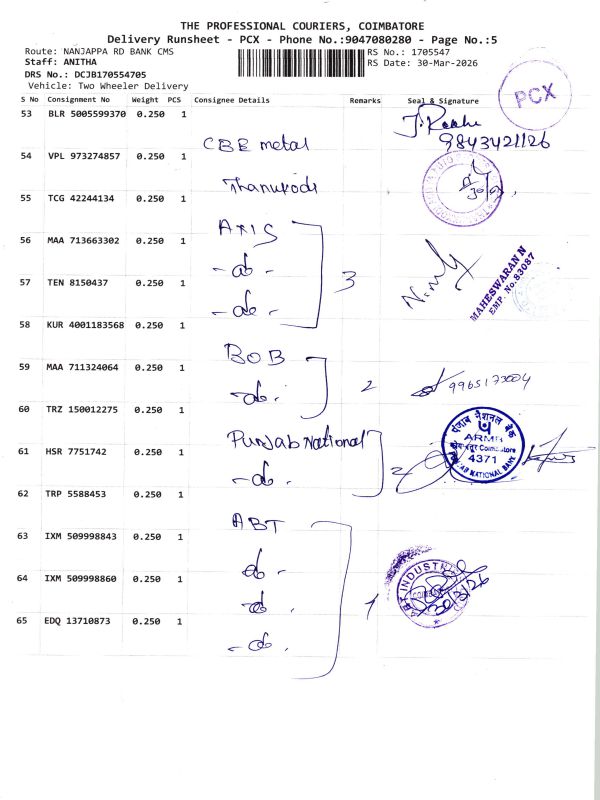 THE PROFESSIONAL COURIERS, COIMBATORE
Delivery Runsheet - PCX - Phone No.:9047080280 - Page No.:5
Route: NANJAPPA RD BANK CMS
RS No.: 1705547
Staff: ANITHA
RS Date: 30-Mar-2026
DRS No.: DCJB170554705
Vehicle: Two Wheeler Delivery
PCX
S No Consignment No Weight PCS Consignee Details Remarks Seal & Signature
53 BLR 5005599370 0.250 1
CBE metal
9843421126
54 VPL 973274857 0.250 1
55 TCG 42244134 0.250 1
AXIS
56 MAA 713663302 0.250 1
-do-
3
MAHESWARAN N
EMP. No.83087
57 TEN 8150437 0.250 1
-do-
58 KUR 4001183568 0.250 1
BOB
59 MAA 711324064 0.250 1
-do-
2
60 TRZ 150012275 0.250 1
Punjab National
पंजाब नैशनल बैंक
ARMB
Coimbatore
4371
PUNJAB NATIONAL BANK
61 HSR 7751742 0.250 1
-do-
2
62 TRP 5588453 0.250 1
ABT
63 IXM 509998843 0.250 1
do-
64 IXM 509998860 0.250 1
-do-
1
ABT INDUSTR
30/3/26
65 EDQ 13710873 0.250 1
-do-